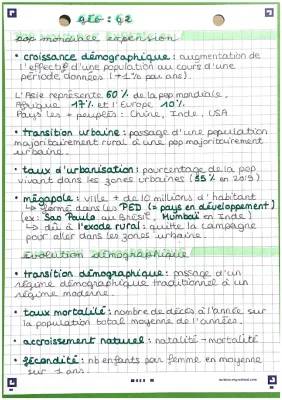 géo : G2
pop mondiale expension
• croissance démographique : augmentation de
l'effectif d'une population au cours d'une
période données (+1% par ans).
L'Asie représente 60% de la pop mondiale,
Afrique 17% et l'Europe 10%.
Pays les + peuplées : Chine, Inde, USA
• transition urbaine : passage d'une population
majoritairement rural à une pop majoritairement
urbaine.
• taux d'urbanisation : pourcentage de la pop
vivant dans les zones urbaines (55% en 2019)
• mégapole : ville + de 10 millions d'habitant
↳ fermé dans les PED (= pays en développement)
(ex : Sao Paulo au Brésil, Mumbai en Inde)
↳ dû à l'exode rural : quitte la campagne
pour aller dans les zones urbaine.
Evolution démographique
• transition démographique : passage d'un
régime démographique traditionnel à un
régime moderne.
• taux mortalité : nombre de décès à l'année sur
la population total moyenne de l'années.
• accroissement naturel : natalité - mortalité
• fécondité : nb enfants par femme en moyenne
sur 1 ans.